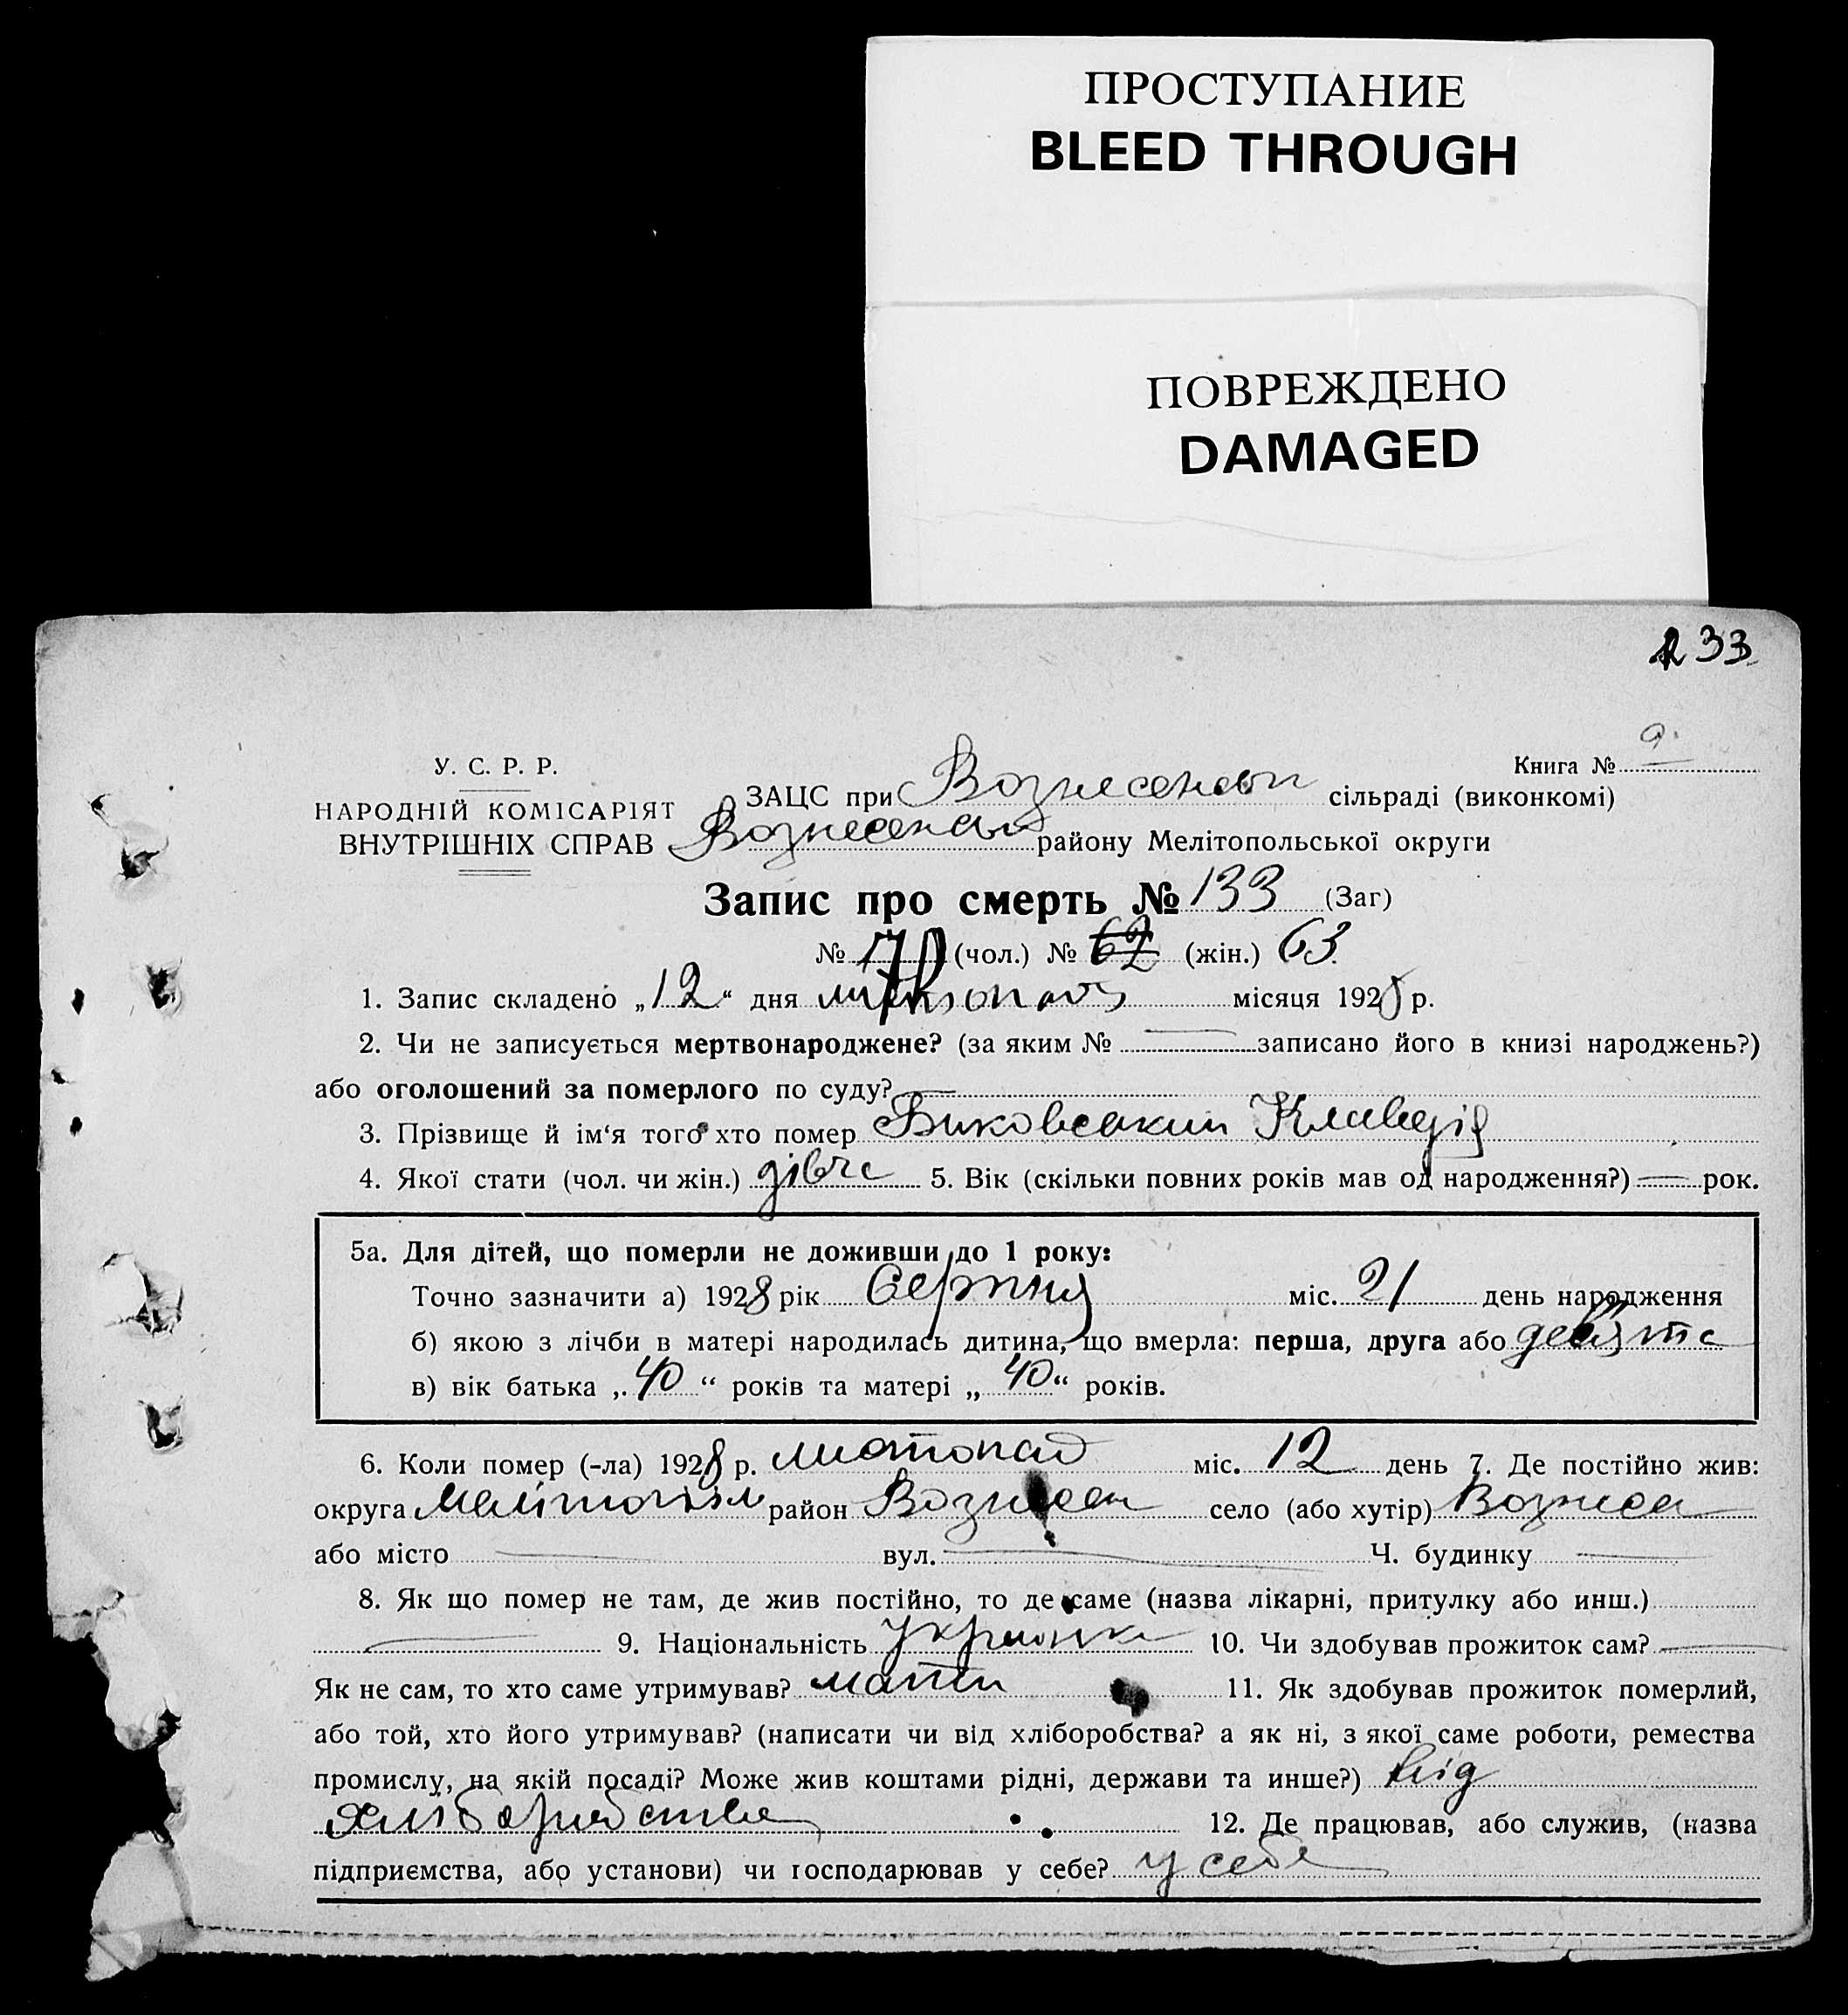 ПРОСТУПАНИЕ
BLEED THROUGH
ПОВРЕЖДЕНО
DAMAGED
233
Книга № 9
У. С. Р. Р.
НАРОДНІЙ КОМІСАРІЯТ
ВНУТРІШНІХ СПРАВ
ЗАЦС при Вознесенськ сільраді (виконкомі)
Вознесенськ району Мелітопольської округи
Запис про смерть № 133 (Заг)
№ 70 (чол.) № 62 (жін.) 63.
1. Запис складено „12“ дня листопад місяця 1928 р.
2. Чи не записується мертвонароджене? (за яким № записано його в книзі народжень?)
або оголошений за померлого по суду?
3. Прізвище й ім‘я того хто помер Биковський Клавдія
4. Якої стати (чол. чи жін.) дівча 5. Вік (скільки повних років мав од народження?) — рок.
5а. Для дітей, що померли не доживши до 1 року:
Точно зазначити а) 1928 рік Серпня міс. 21 день народження
б) якою з лічби в матері народилась дитина, що вмерла: перша, друга або девята
в) вік батька „40“ років та матері „40“ років.
6. Коли помер (-ла) 1928 р. листопад міс. 12 день 7. Де постійно жив:
округа Мелітопіл район Вознесен село (або хутір) Вознесен
або місто — вул. — Ч. будинку —
8. Як що помер не там, де жив постійно, то де саме (назва лікарні, притулку або инш.)
— 9. Національність Українка 10. Чи здобував прожиток сам? —
Як не сам, то хто саме утримував? мати 11. Як здобував прожиток померлий,
або той, хто його утримував? (написати чи від хліборобства? а як ні, з якої саме роботи, ремества
промислу, на якій посаді? Може жив коштами рідні, держави та инше?) від
хліборобства 12. Де працював, або служив, (назва
підприємства, або установи) чи господарював у себе? у себе